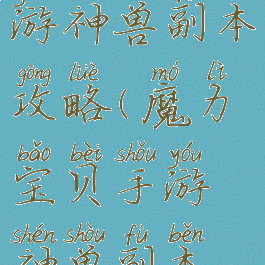 游神兽副本
gōng lüè mó lì
攻略(魔力
bǎo bèi shǒu yóu
宝贝手游
shén shòu fù běn
神兽副本